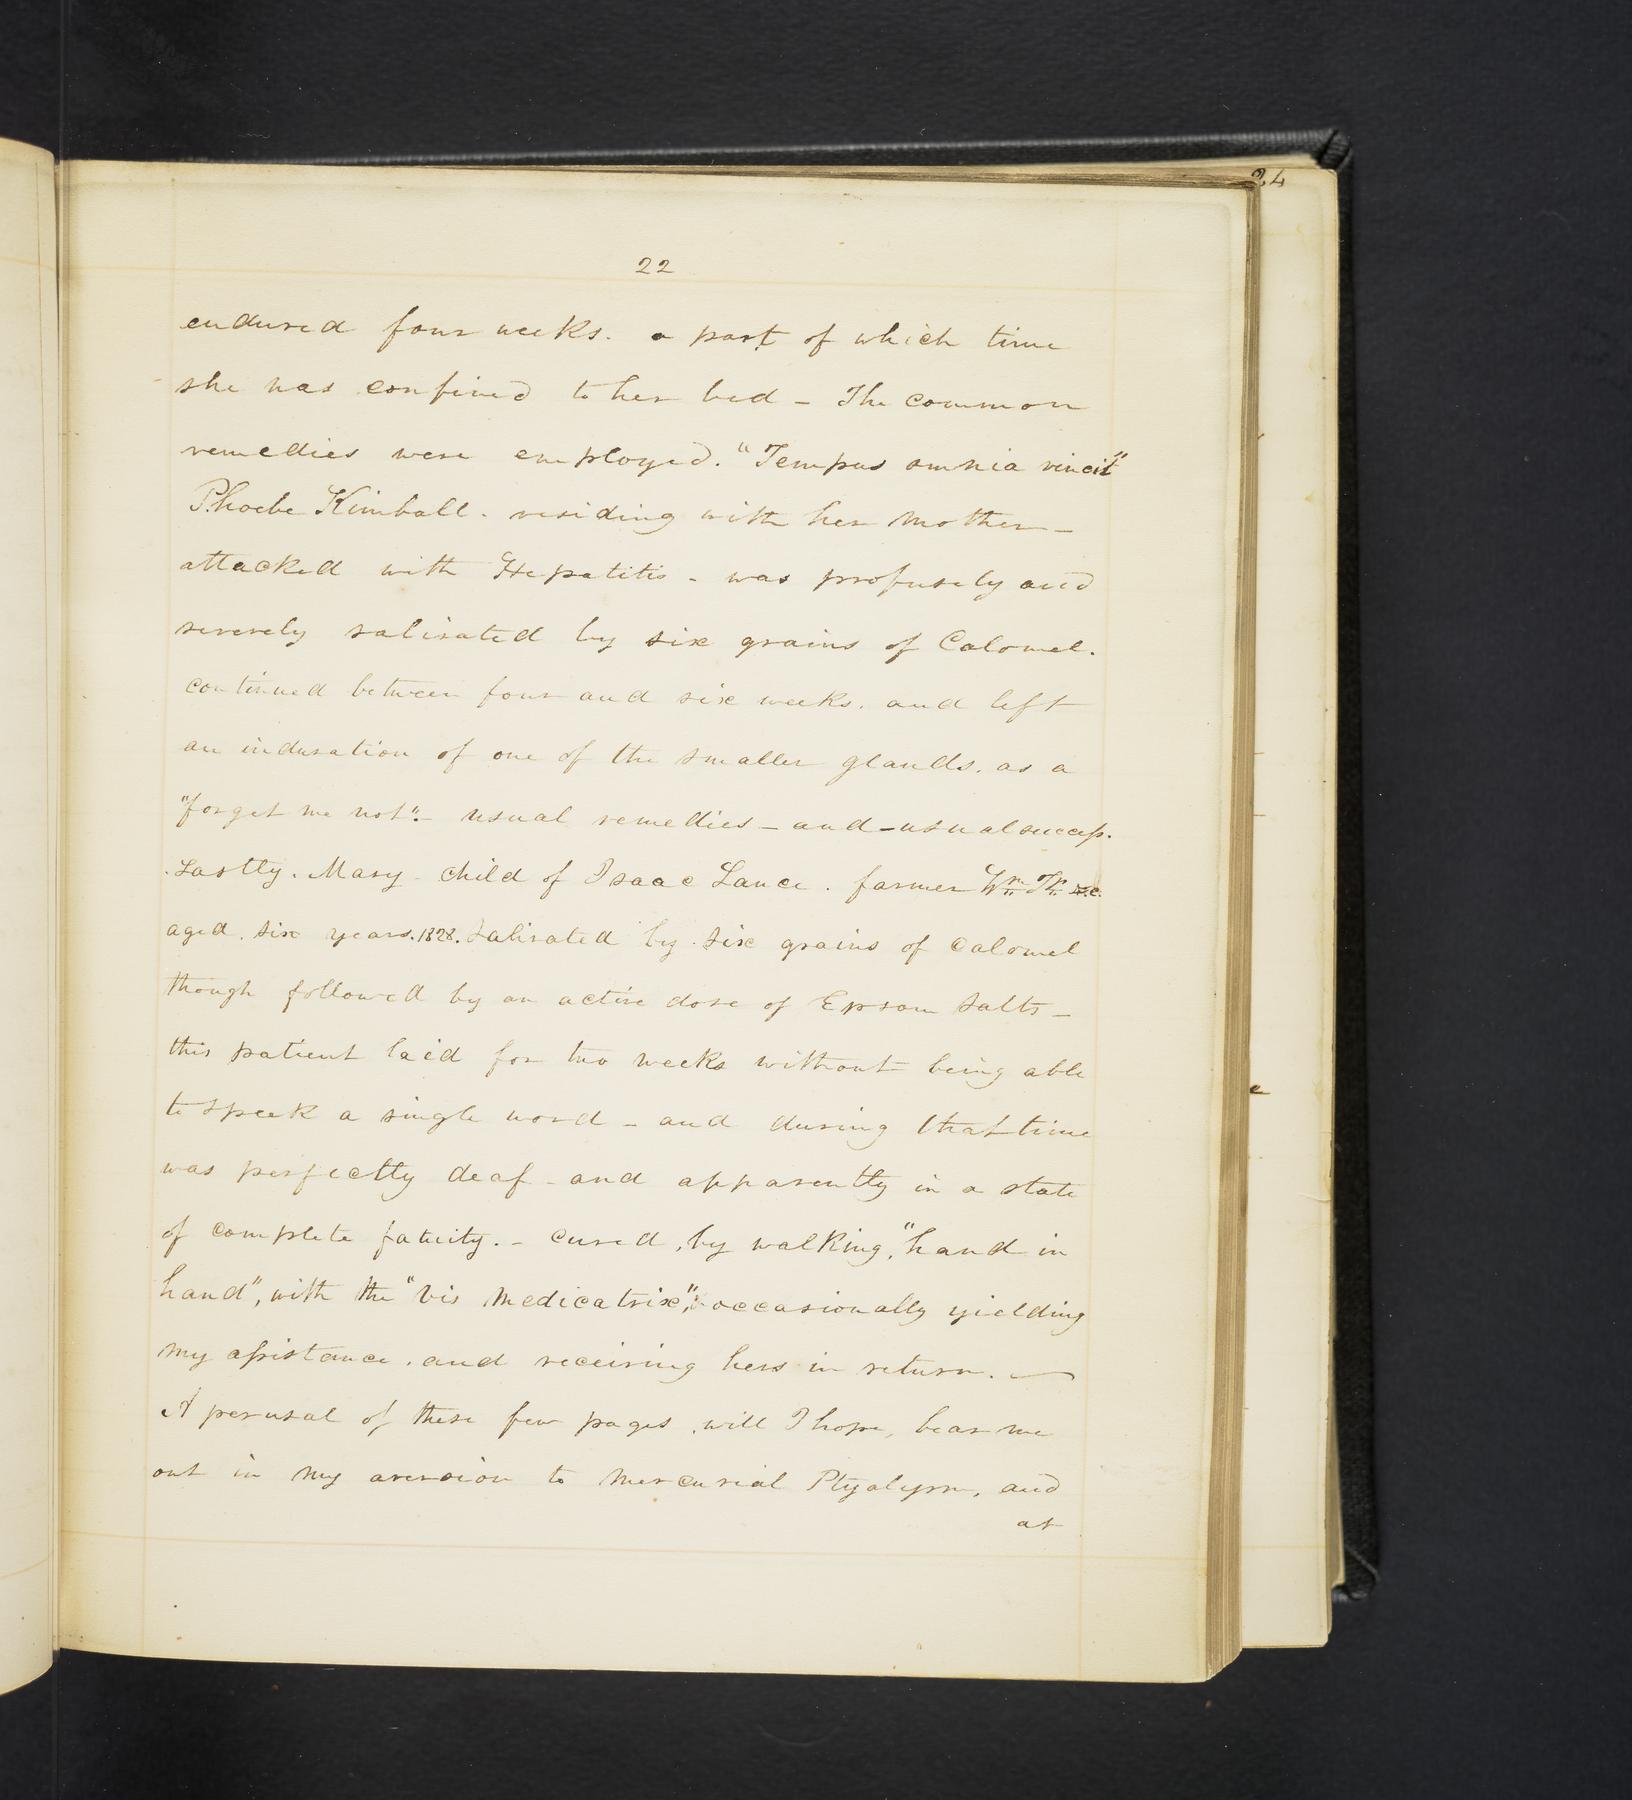 24
22
endured four weeks. a part of which time
she was confined to her bed - The common
remedies were employed. "Tempus omnia vincit"
Phoebe Kimball. residing with her Mother -
attacked with Hepatitis - was profusely and
severely salivated by six grains of Calomel.
continued between four and six weeks. and left
an induration of one of the smaller glands. as a
"forget me not". - usual remedies - and - usual success.
Lastly. Mary - child of Isaac Lance. farmer
aged six years. 1828. Salivated by six grains of Calomel
though followed by an active dose of Epsom Salts -
this patient laid for two weeks without being able
to speek a single word - and during that time
was perfectly deaf - and apparently in a state
of complete fatuity. - cured, by walking, "hand in
hand", with the "Vis Medicatrix", occasionally yielding
my assistance, and receiving hers in return. -
A perusal of these few pages, will I hope, bear me
out in my aversion to Mercurial Ptyalysm, and
at